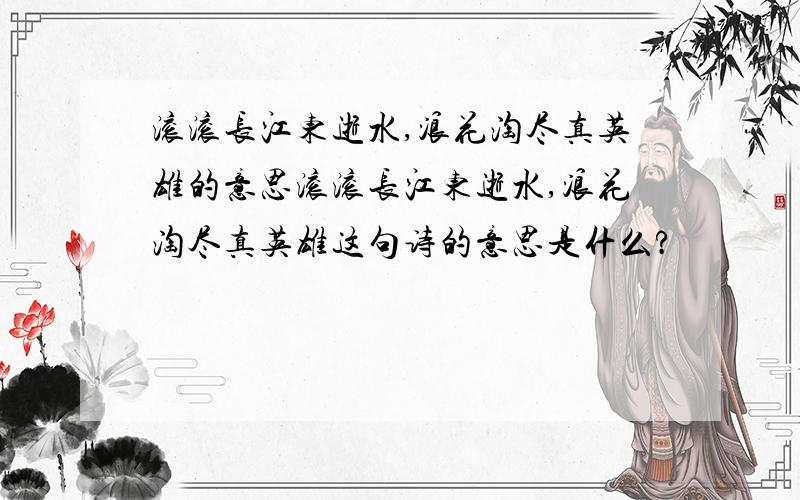 滚滚長江東逝水,浪花淘尽真英
雄的意思滚滚長江東逝水,浪花
淘尽真英雄这句诗的意思是什么?